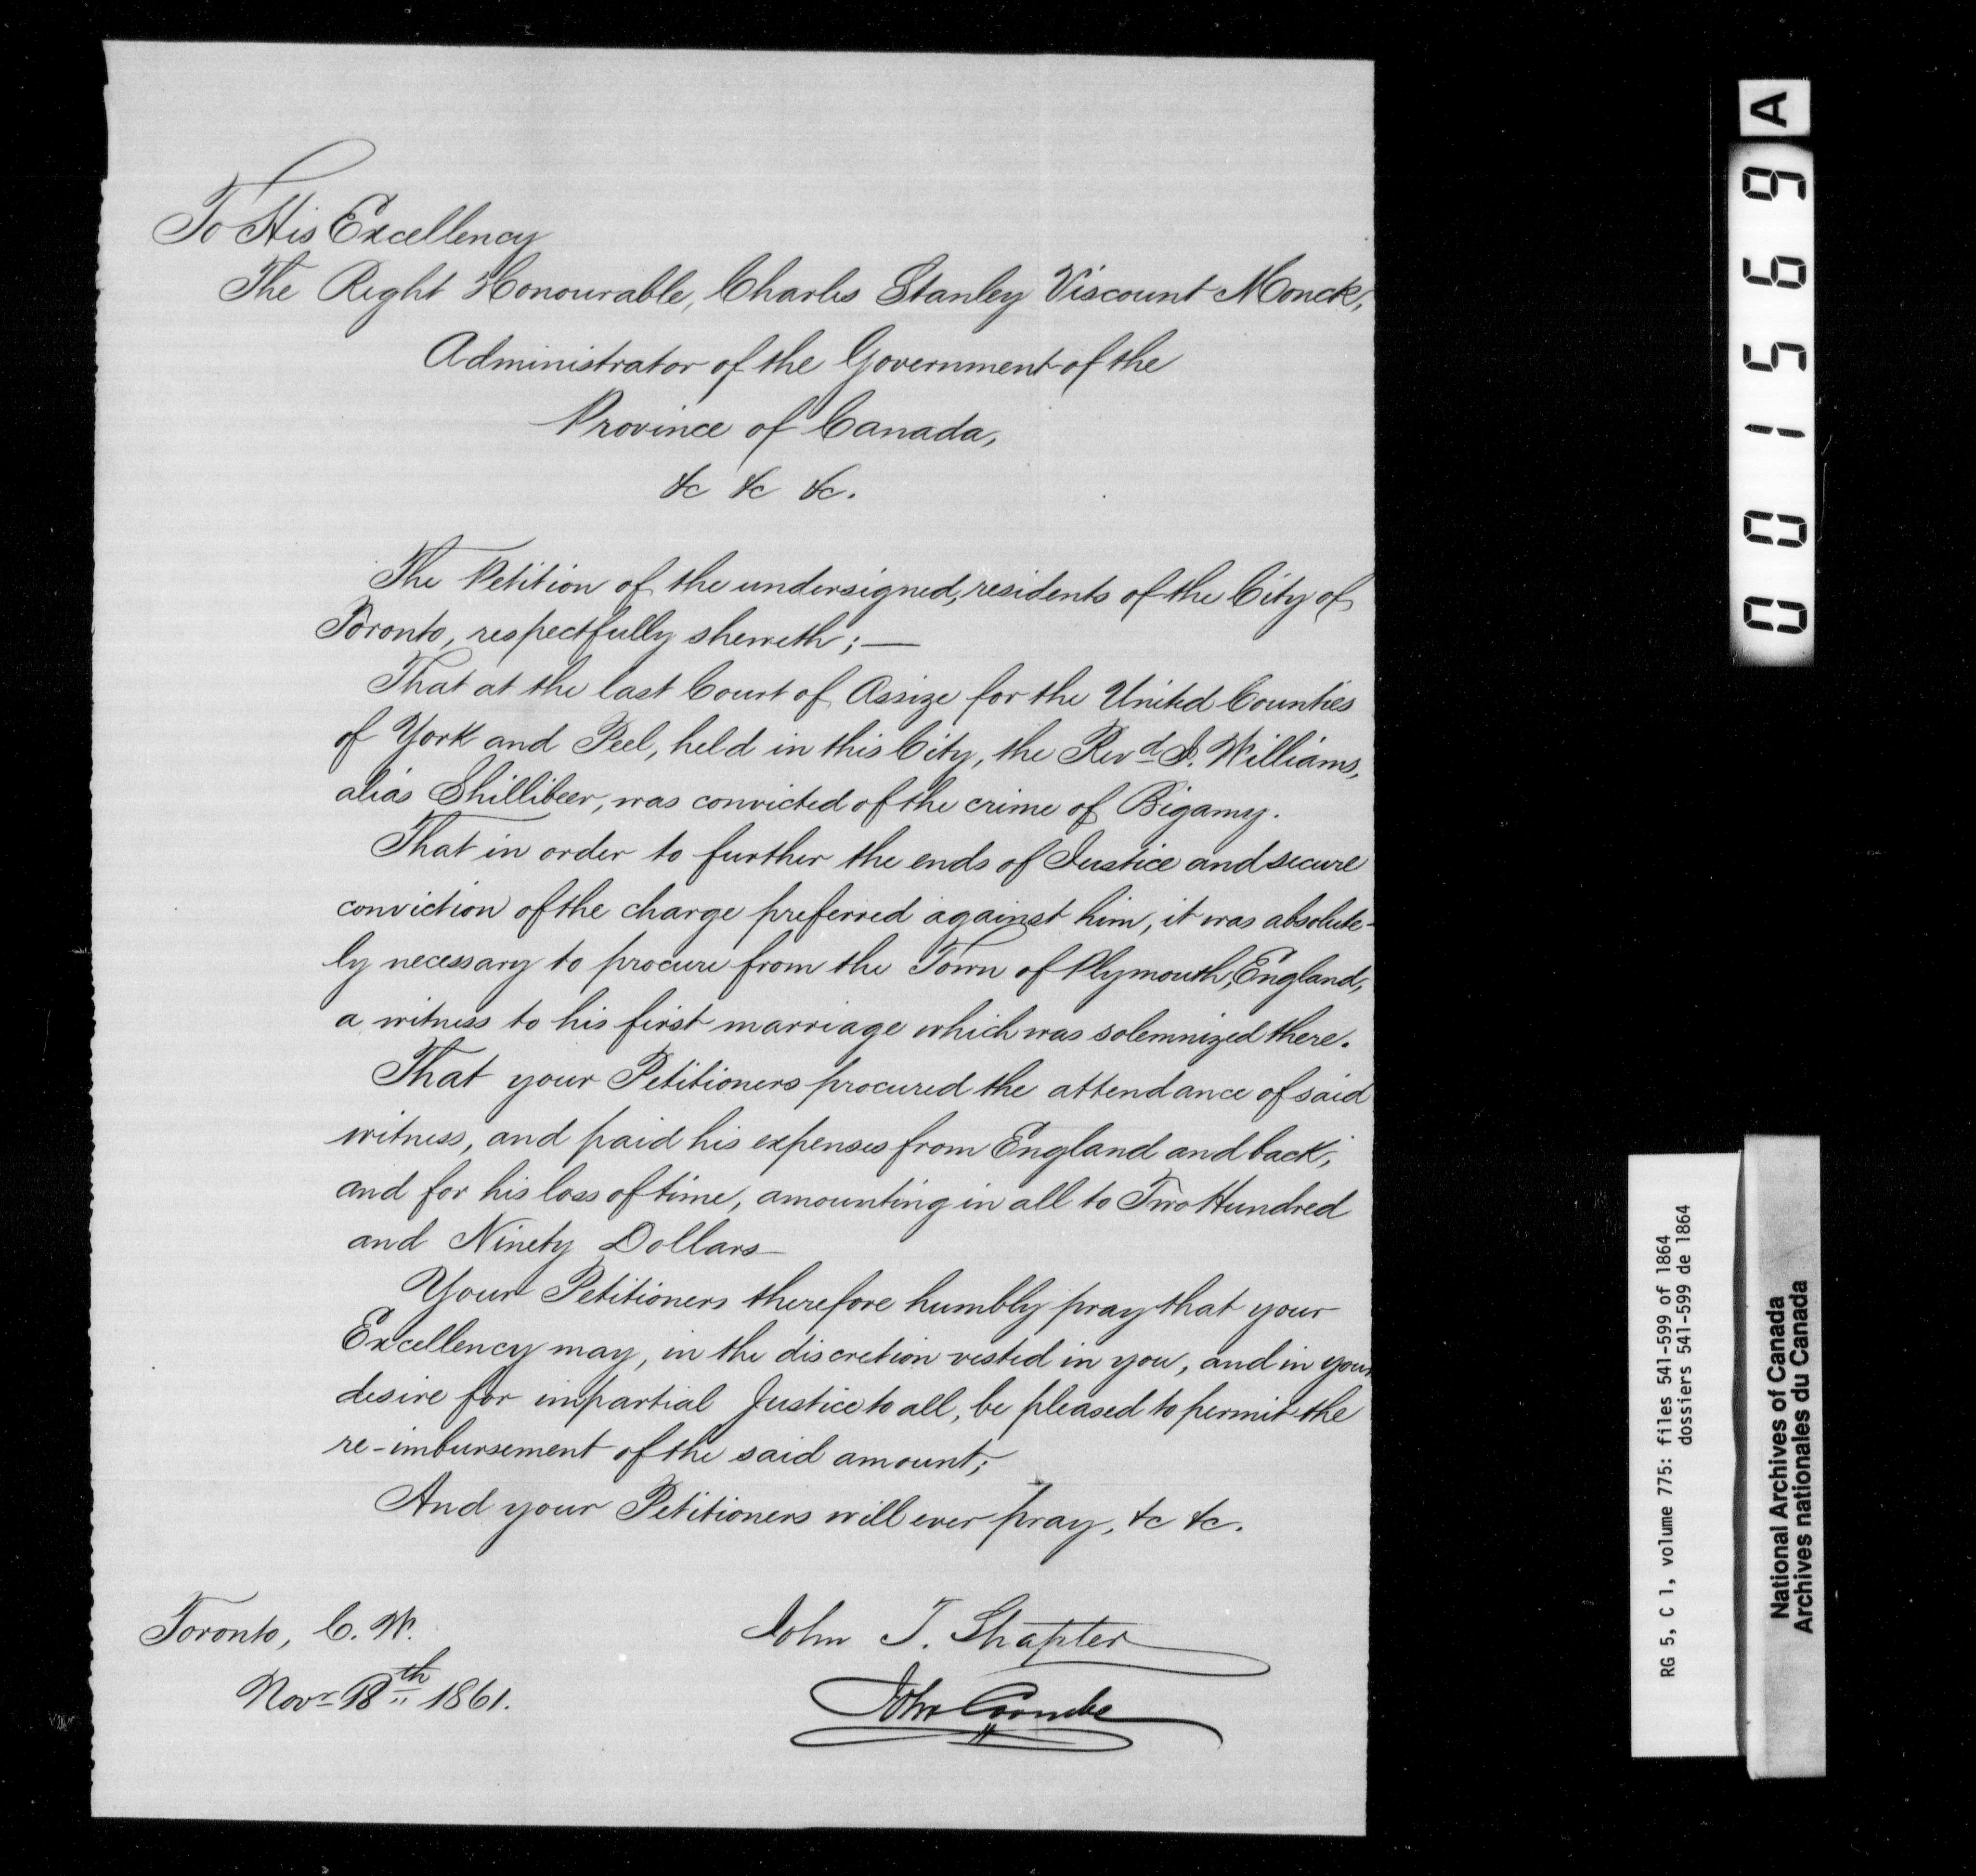 To His Excellency
The Right Honourable, Charles Stanley Viscount Monck,
Administrator of the Government of the
Province of Canada,
&c &c &c.
The Petition of the undersigned, residents of the City of
Toronto, respectfully sheweth; —
That at the last Court of Assize for the United Counties
of York and Peel, held in this City, the Revd J. Williams,
alias Shillibeer, was convicted of the crime of Bigamy.
That in order to further the ends of Justice and secure
conviction of the charge preferred against him, it was absolute-
ly necessary to procure from the Town of Plymouth, England,
a witness to his first marriage which was solemnized there.
That your Petitioners procured the attendance of said
witness, and paid his expenses from England and back,
and for his loss of time, amounting in all to Two Hundred
and Ninety Dollars—
Your Petitioners therefore humbly pray that your
Excellency may, in the discretion vested in you, and in your
desire for impartial Justice to all, be pleased to permit the
re-imbursement of the said amount;
And your Petitioners will ever pray, &c &c.
Toronto, C. W.
Novr 18th 1861.
John T. Shapter
John Coombe
001569 A
RG 5, C 1, volume 775: files 541-599 of 1864
dossiers 541-599 de 1864
National Archives of Canada
Archives nationales du Canada